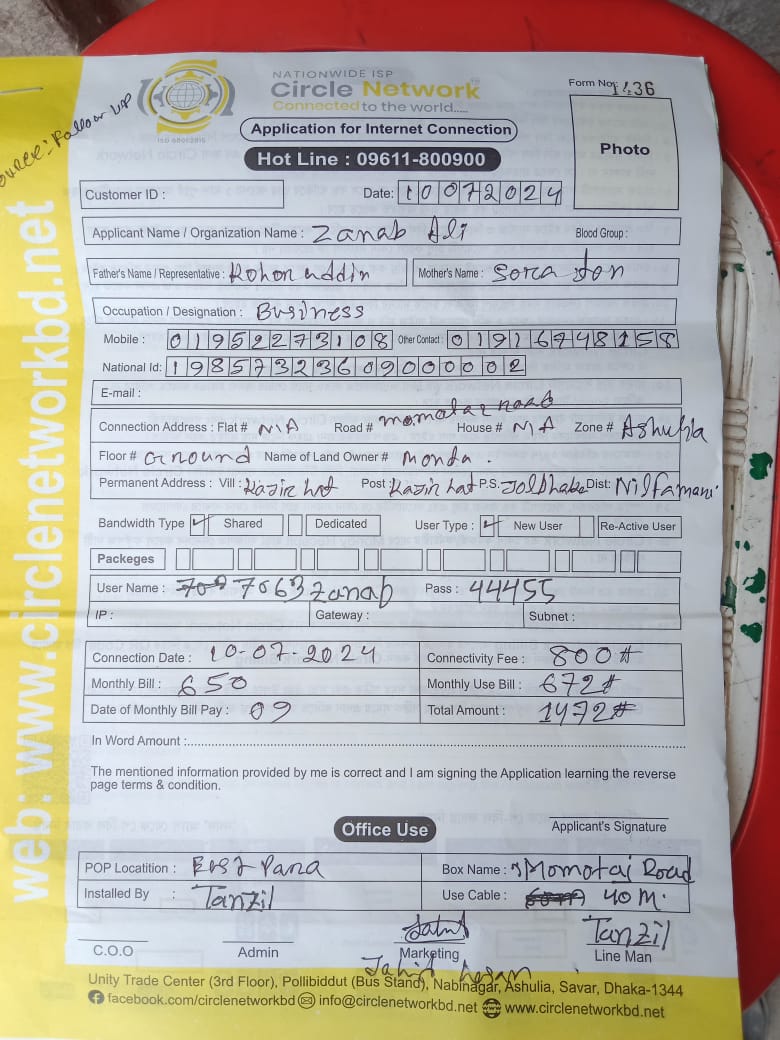 Source: Follow UP
NATIONWIDE ISP
Circle Network
Connected to the world.....
ISO 9001:2015
Form No: 1436
Photo
Application for Internet Connection
Hot Line : 09611-800900
Customer ID :
Date: 10072024
Applicant Name / Organization Name : Zanab Ali Blood Group :
Father's Name / Representative : Rohon uddin Mother's Name : Sora Jon
Occupation / Designation : Business
Mobile : 01952273108 Other Contact : 01916748158
National Id: 19857323609000002
E-mail :
Connection Address : Flat # N/A Road # momotaz road House # N/A Zone # Ashulia
Floor # Ground Name of Land Owner # Monda .
Permanent Address : Vill : Kazir hat Post : Kazir hat P.S. Joldhaka Dist: Nilfamari
Bandwidth Type ✓ Shared Dedicated User Type : ✓ New User Re-Active User
Packeges
User Name : 7063zanab Pass : 44455
IP : Gateway : Subnet :
Connection Date : 10-07-2024 Connectivity Fee : 800#
Monthly Bill : 650 Monthly Use Bill : 672#
Date of Monthly Bill Pay : 09 Total Amount : 1472#
In Word Amount :
The mentioned information provided by me is correct and I am signing the Application learning the reverse
page terms & condition.
Applicant's Signature
Office Use
POP Locatition : East Para Box Name : Momotaj Road
Installed By : Tanzil Use Cable : 40 M.
Tanzil
C.O.O Admin Marketing Line Man
Jahid hasan
Unity Trade Center (3rd Floor), Pollibiddut (Bus Stand), Nabinagar, Ashulia, Savar, Dhaka-1344
facebook.com/circlenetworkbd info@circlenetworkbd.net www.circlenetworkbd.net
web: www.circlenetworkbd.net